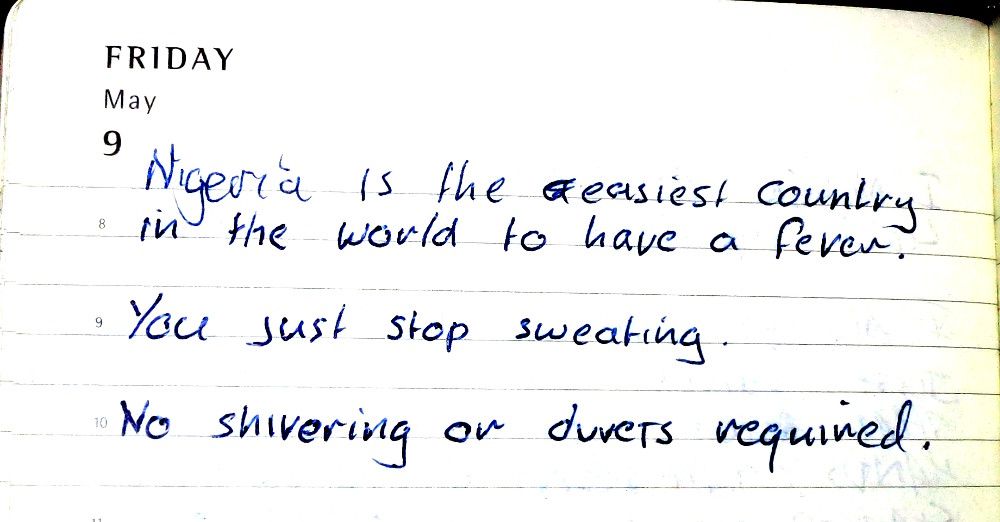 FRIDAY
May
9
Nigeria is the easiest country
8 in the world to have a fever.
9 You just stop sweating.
10 No shivering or duvets required.
11